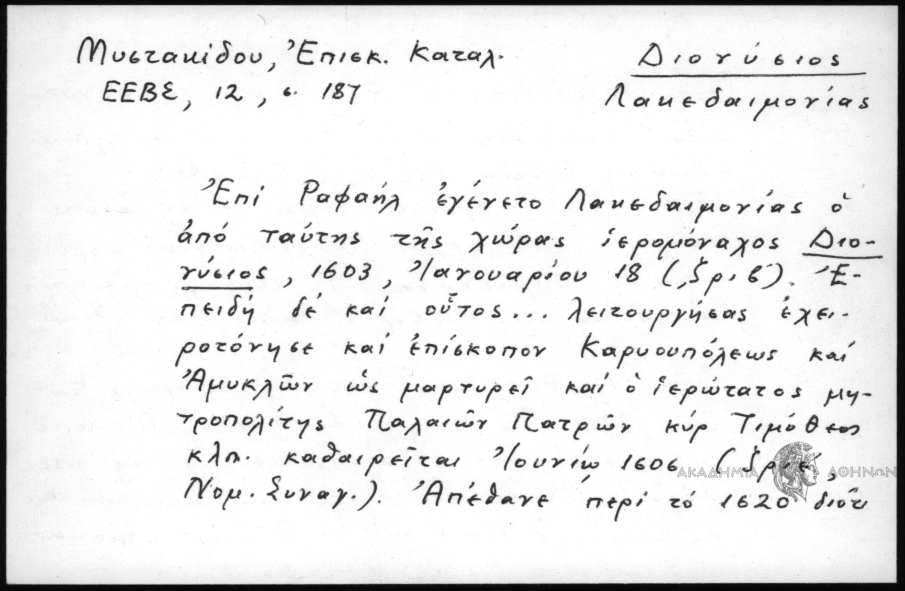 Μυστακίδου, Ἐπισκ. Καταλ.
ΕΕΒΣ, 12, σ. 187
Διονύσιος
Λακεδαιμονίας
Ἐπί Ραφαήλ ἐγένετο Λακεδαιμονίας ὁ
ἀπό ταύτης τῆς χώρας ἱερομόναχος Διο-
νύσιος, 1603, Ἰανουαρίου 18 (͵ζριβ́). Ἐ-
πειδή δέ καί οὗτος... λειτουργήσας ἐχει-
ροτόνησε καί ἐπίσκοπον Καρυουπόλεως καί
Ἀμυκλῶν ὡς μαρτυρεῖ καί ὁ ἱερώτατος μη-
τροπολίτης Παλαιῶν Πατρῶν κύρ Τιμόθεος
κλπ. καθαιρεῖται Ἰουνίῳ 1606 (
Νομ. Συναγ.). Ἀπέθανε περί τό 1620 διότι
ΑΚΑΔΗΜΙΑ ΑΘΗΝΩΝ